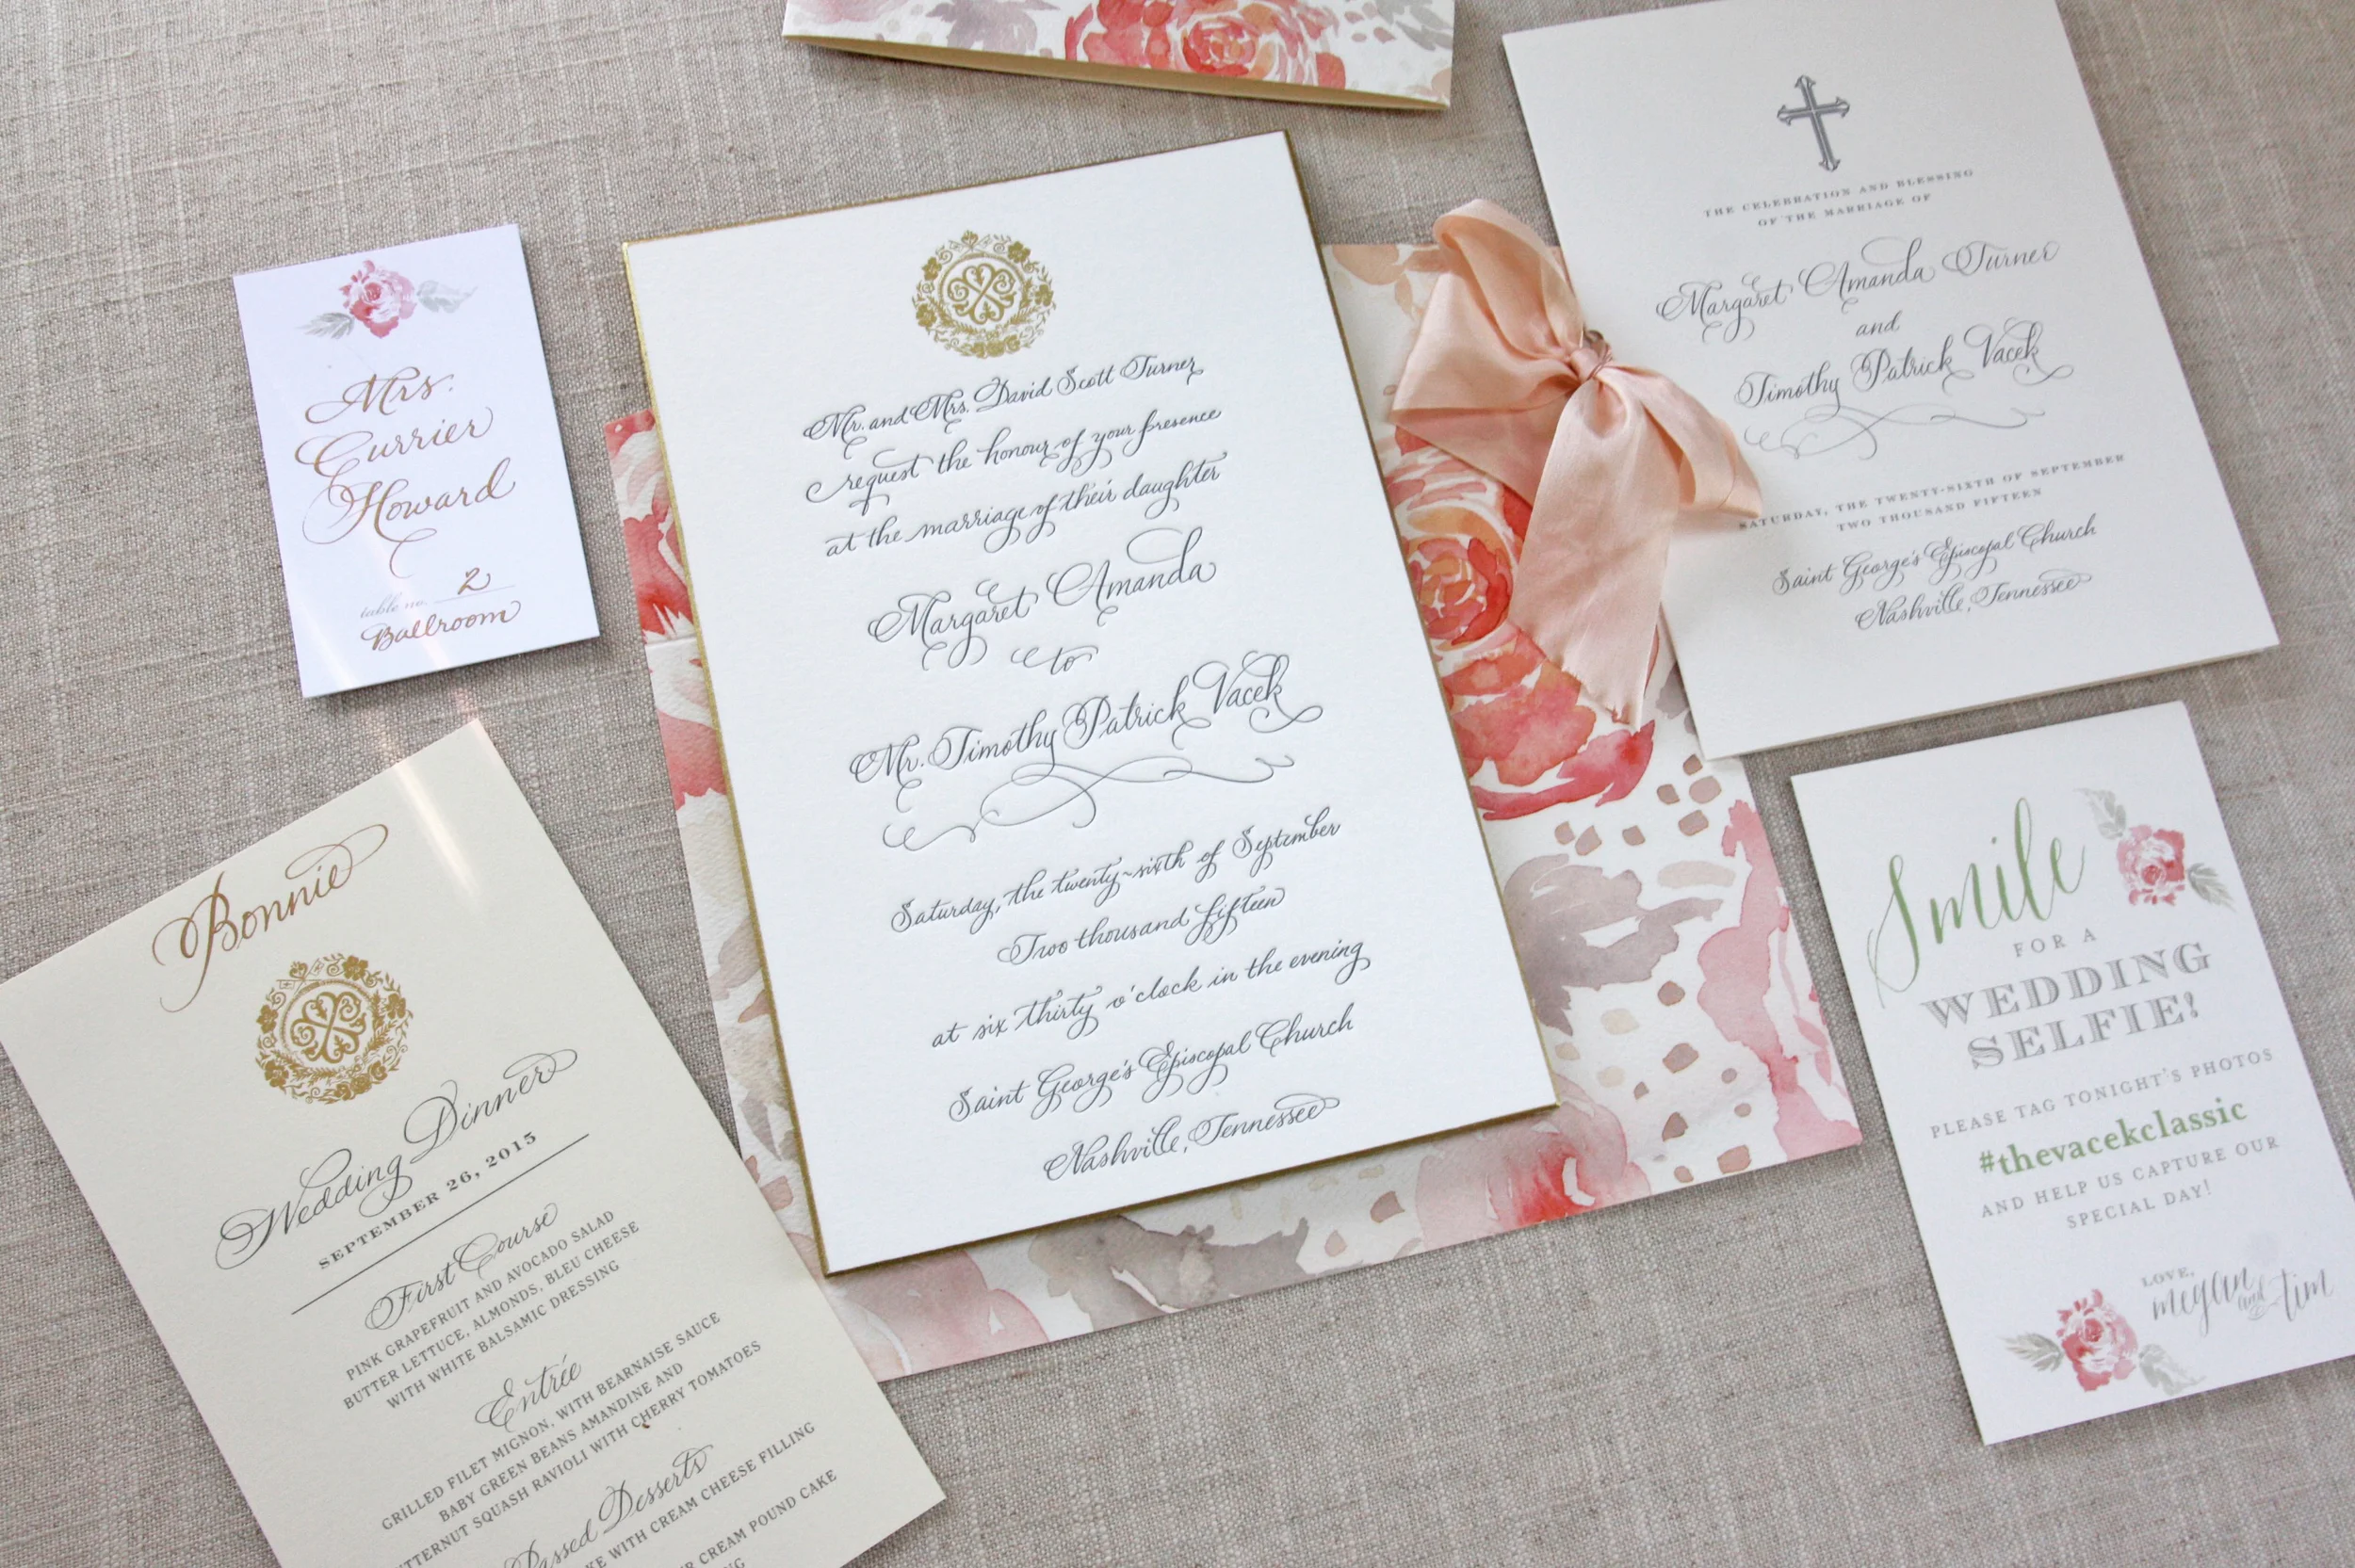 Mrs.
Currier
Howard
table no. 2
Ballroom
Mr. and Mrs. David Scott Turner
request the honour of your presence
at the marriage of their daughter
Margaret Amanda
to
Mr. Timothy Patrick Vacek
Saturday, the twenty-sixth of September
Two thousand fifteen
at six thirty o'clock in the evening
Saint George's Episcopal Church
Nashville, Tennessee
THE CELEBRATION AND BLESSING
OF THE MARRIAGE OF
Margaret Amanda Turner
and
Timothy Patrick Vacek
SATURDAY, THE TWENTY-SIXTH OF SEPTEMBER
TWO THOUSAND FIFTEEN
Saint George's Episcopal Church
Nashville, Tennessee
Bonnie
Wedding Dinner
SEPTEMBER 26, 2015
First Course
PINK GRAPEFRUIT AND AVOCADO SALAD
BUTTER LETTUCE, ALMONDS, BLEU CHEESE
WITH WHITE BALSAMIC DRESSING
Entrée
GRILLED FILET MIGNON, WITH BEARNAISE SAUCE
BABY GREEN BEANS AMANDINE AND
SQUASH RAVIOLI WITH CHERRY TOMATOES
Passed Desserts
WITH CREAM CHEESE FILLING
CREAM POUND CAKE
Smile
FOR A
WEDDING
SELFIE!
PLEASE TAG TONIGHT'S PHOTOS
#thevacekclassic
AND HELP US CAPTURE OUR
SPECIAL DAY!
LOVE,
megan and tim